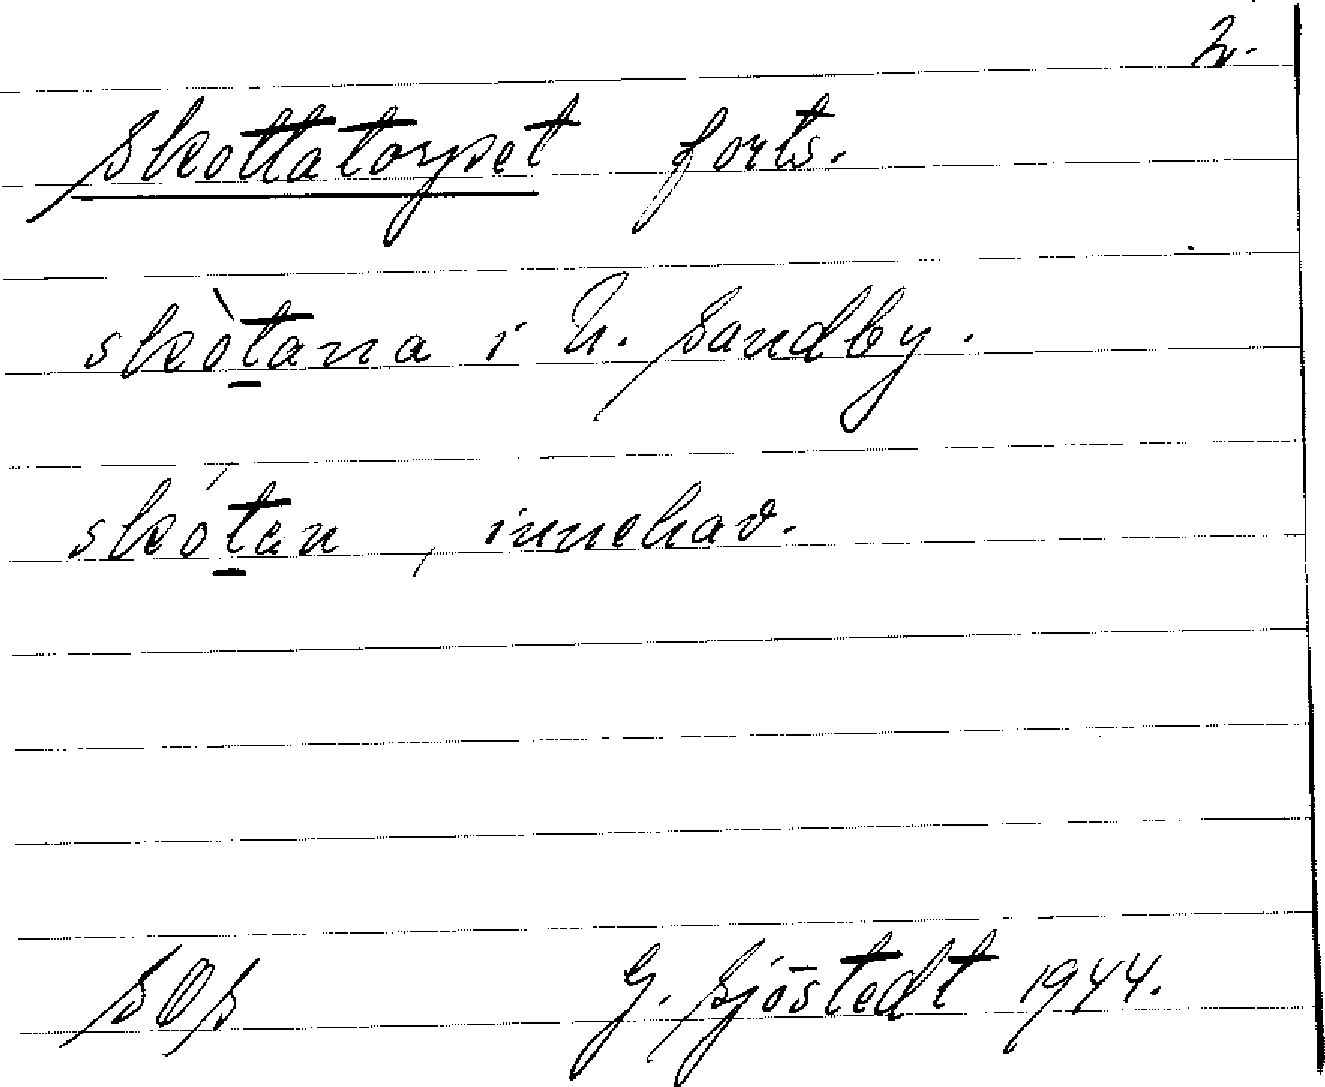 2.
Skottatorpet forts.
skòtana i N. Sandby.
skótan, innehav.
SOS G. Sjöstedt 1944.